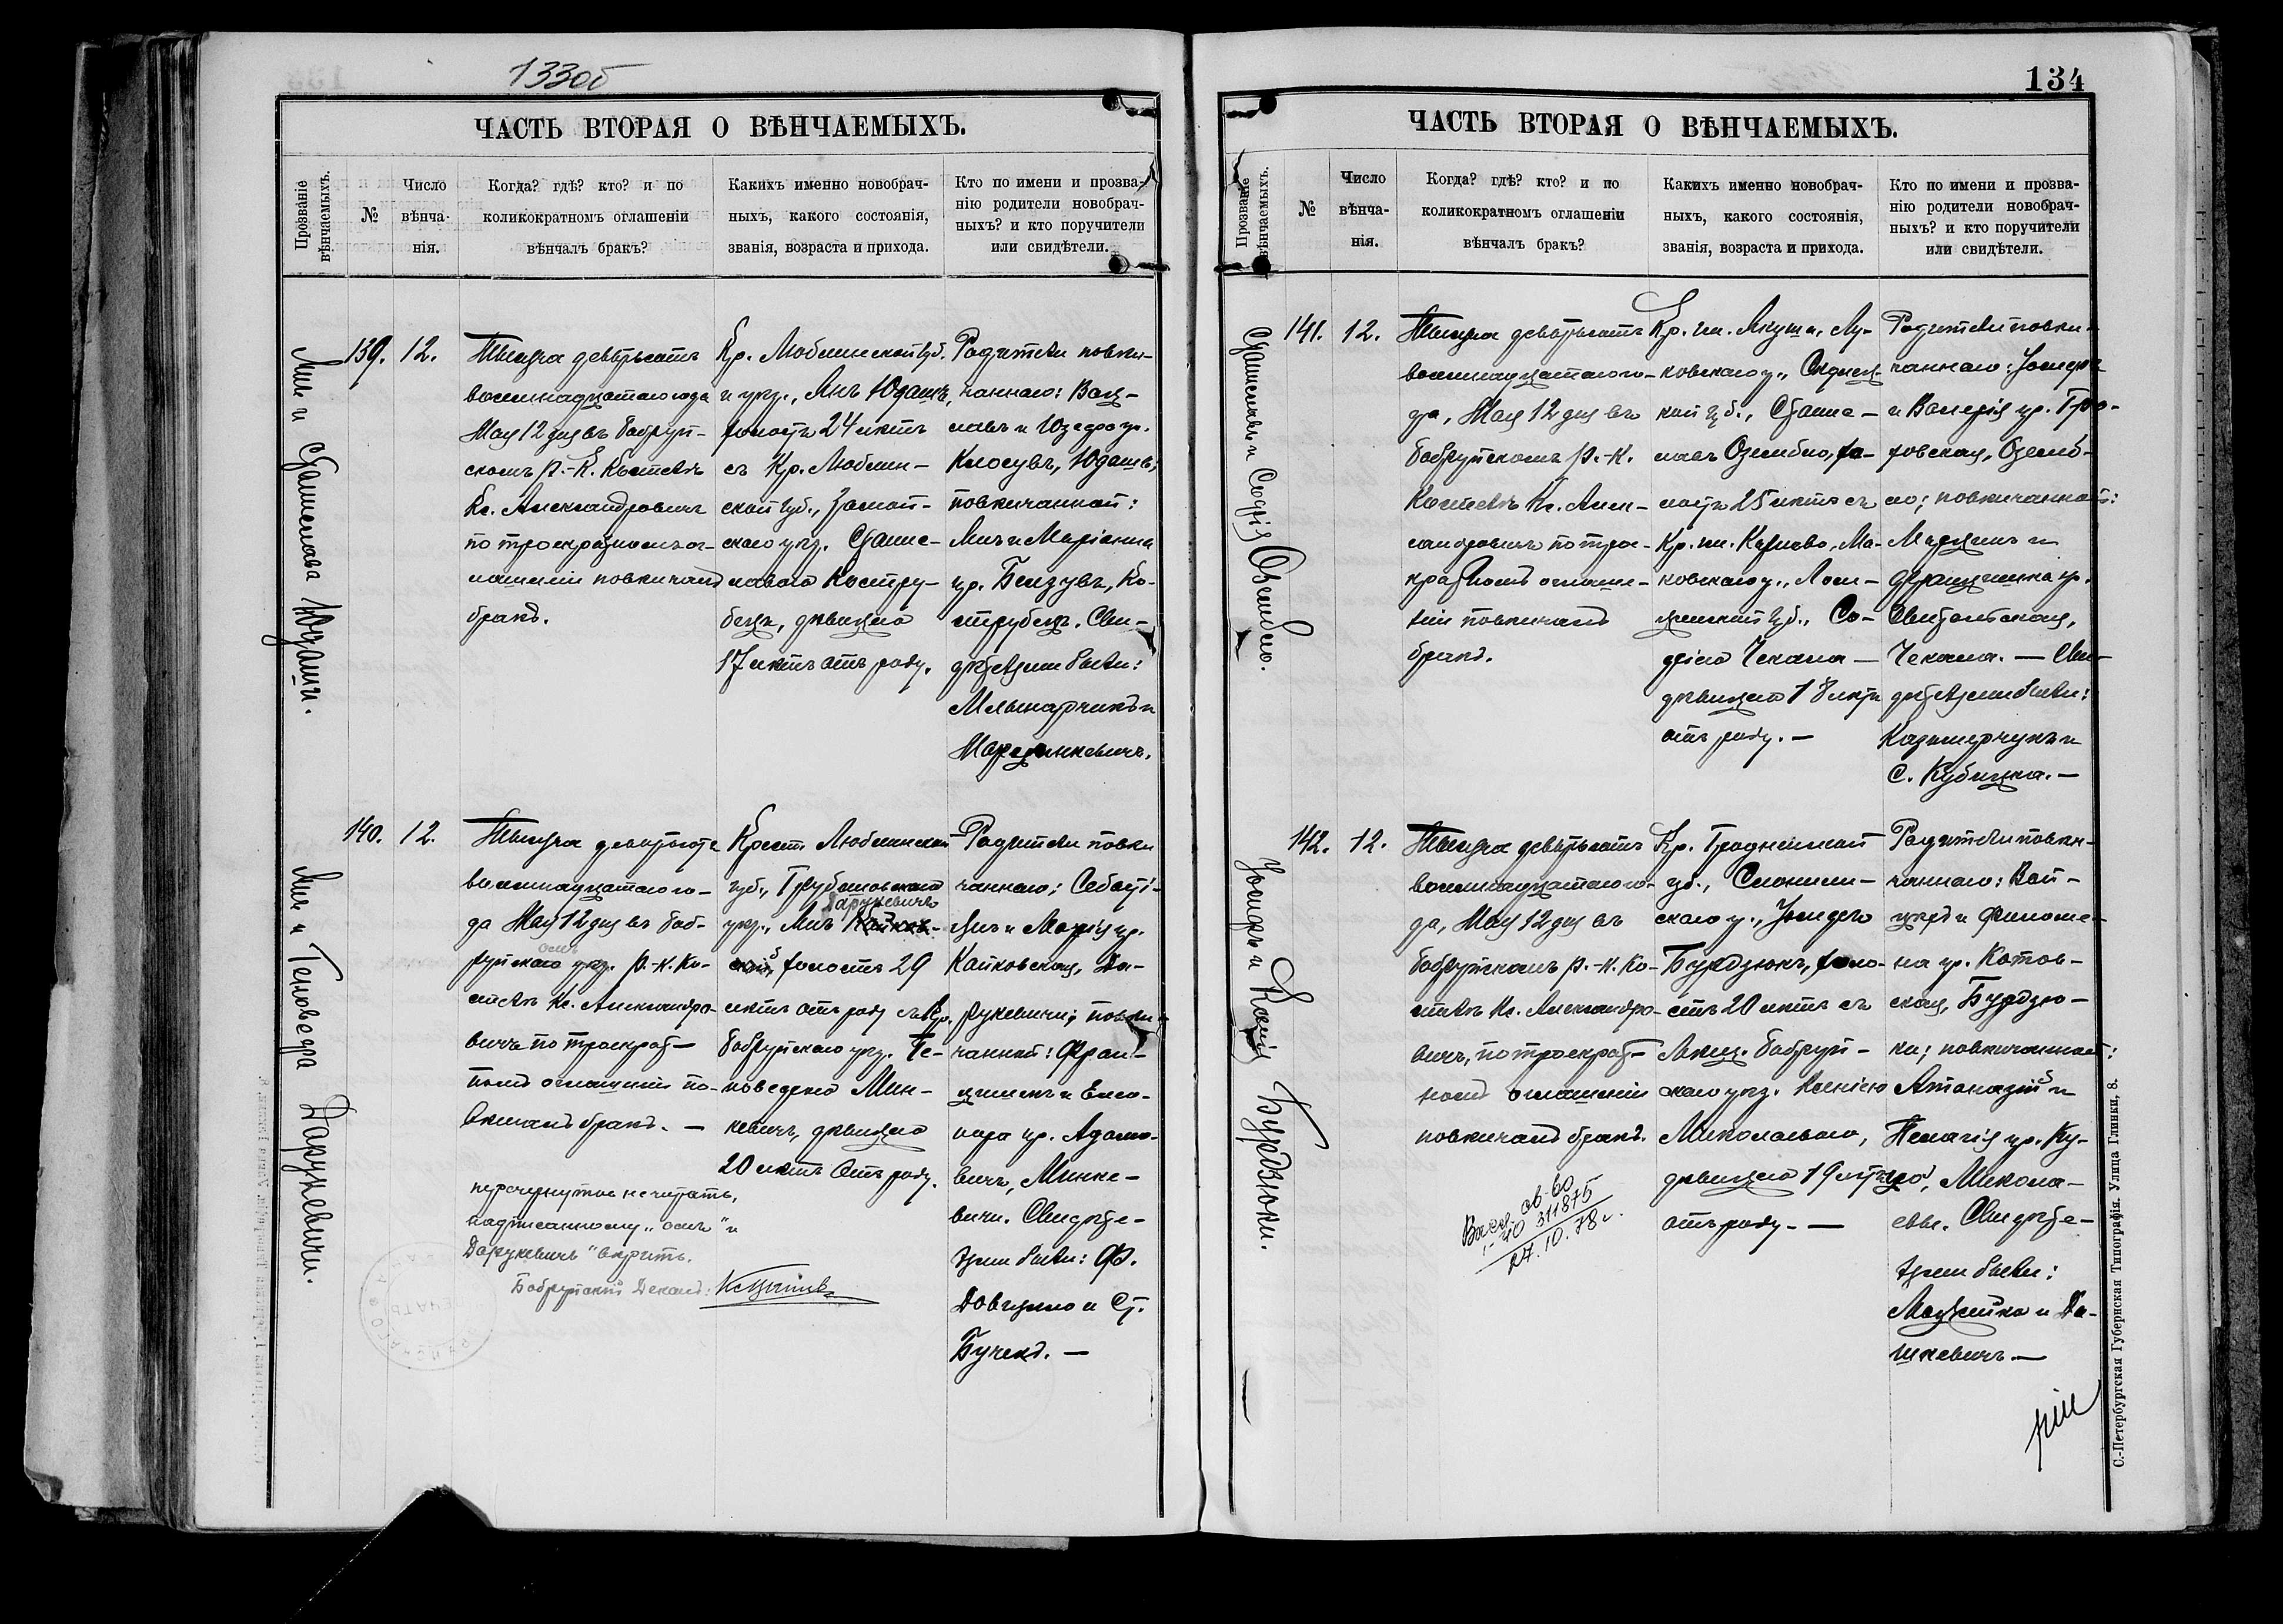 133об
ЧАСТЬ ВТОРАЯ О ВѢНЧАЕМЫХЪ.
Прозваніе вѣнчаемыхъ.
№
Число вѣнча-
нія.
Когда? гдѣ? кто? и по
коликократномъ оглашеніи
вѣнчалъ бракъ?
Какихъ именно новобрач-
ныхъ, какого состоянія,
званія, возраста и прихода.
Кто по имени и прозва-
нію родители новобрач-
ныхъ? и кто поручители
или свидѣтели.
Янъ и Станислава Юдаши.
139.
12.
Тысяча девятьсотъ
восемнадцатаго года
Мая 12 дня въ Бобруй-
скомъ Р.-К. Костелѣ
Кс. Александровичъ
по троекратномъ ог-
лашеніи повѣнчалъ
бракъ.
Кр. Люблинской губ.
и уѣз., Янъ Юдашъ,
холостъ 24 лѣтъ
съ Кр. Люблин-
ской губ., Замой-
скаго уѣз. Станис-
лавою Костру-
бецъ, дѣвицею
17 лѣтъ отъ роду.
Родители повѣн-
чаннаго: Вац-
лавъ и Юзефа ур.
Клосувъ, Юдашъ;
повѣнчанной:
Янъ и Маріанна
ур. Бензувъ, Ко-
струбецъ. Сви-
дѣтелями были:
Мельнарчикъ и
Марцинкевичъ.
Янъ и Геновефа Дарукевичи.
140.
12.
Тысяча девятьсотъ
восемнадцатаго го-
да Мая 12 дня въ Боб-
руйскаго омъ уѣз. Р.-К. Ко-
стелѣ Кс. Александро-
вичъ по троекрат-
номъ оглашеніи по-
вѣнчалъ бракъ. —
Крест. Люблинской
губ., Грубешовскаго
уѣз., Янъ Дарукевичъ
холостъ 29
лѣтъ отъ роду съ Кр.
Бобруйскаго уѣз. Ге-
новефою Мин-
кевичъ, дѣвицею
20 лѣтъ отъ роду.
Родители повѣн
чаннаго: Себасті-
янъ и Марія ур.
Кайковская, Да-
рукевичи; повѣн-
чанной: Фран-
цишекъ и Елео-
нора ур. Адамо-
вичъ, Минке-
вичи. Свидѣте-
лями были: Ф.
Довгялло и Ст.
Бучекъ. —
перечеркнутое не читать,
надписанному „омъ“ и
Дарукевичъ“ вѣрить.
Бобруйскій Деканъ:
134
ЧАСТЬ ВТОРАЯ О ВѢНЧАЕМЫХЪ.
Прозваніе вѣнчаемыхъ.
№
Число
вѣнча-
нія.
Когда? гдѣ? кто? и по
коликократномъ оглашеніи
вѣнчалъ бракъ?
Какихъ именно новобрач-
ныхъ, какого состоянія,
званія, возраста и прихода.
Кто по имени и прозва-
нію родители новобрач-
ныхъ? и кто поручители
или свидѣтели.
Станиславъ и Софія
141.
12.
Тысяча девятьсотъ
восемнадцатаго го-
да, Мая 12 дня въ
Бобруйскомъ Р.-К.
Костелѣ Кс. Алек-
сандровичъ по трое-
кратномъ оглаше-
ніи повѣнчалъ
бракъ.
Кр. гм. Лу-
ковскаго у., Сѣдлец-
кой губ., Станис-
лавъ хо-
лостъ 25 лѣтъ съ
Кр. гм. Карнево, Ма-
ковскаго у., Лом-
жинской губ., Со-
фіею Чекала —
дѣвицею 18 лѣтъ
отъ роду. —
Родители повѣн-
чаннаго: Іосифъ
и Валерія ур.
повѣнчанной:
Марцинъ и
Францишка ур.
Чекала. — Сви-
дѣтелями были:
Казимерчукъ и
С. Кубицка. —
Іосифъ и Ксенія Бурдзюки.
142.
12.
Тысяча девятьсотъ
восемнадцатаго го-
да, Мая 12 дня въ
Бобруйскомъ Р.-К. Ко-
стелѣ Кс. Александро-
вичъ, по троекрат-
номъ оглашеніи
повѣнчалъ бракъ.
Кр. Гродненской
губ., Слоним-
скаго у., Іосифъ
Бурдзюкъ, холо-
стъ 20 лѣтъ съ
мѣщ. Бобруй-
скаго уѣз. Ксеніею
Миколаевою,
дѣвицею 19 лѣтъ
отъ роду. —
Родители повѣн-
чаннаго: Вой-
цѣхъ и Филоме-
на ур. Котов-
ская, Бурдзю-
ки; повѣнчанной:
Атаназій и
Пелагія ур. Ку-
Микола-
евы. Свидѣте-
лями были:
и Да-
шкевичъ. —
311875
27.10.78 г.
С.-Петербургская Губернская Типографія. Улица Глинки, 8.